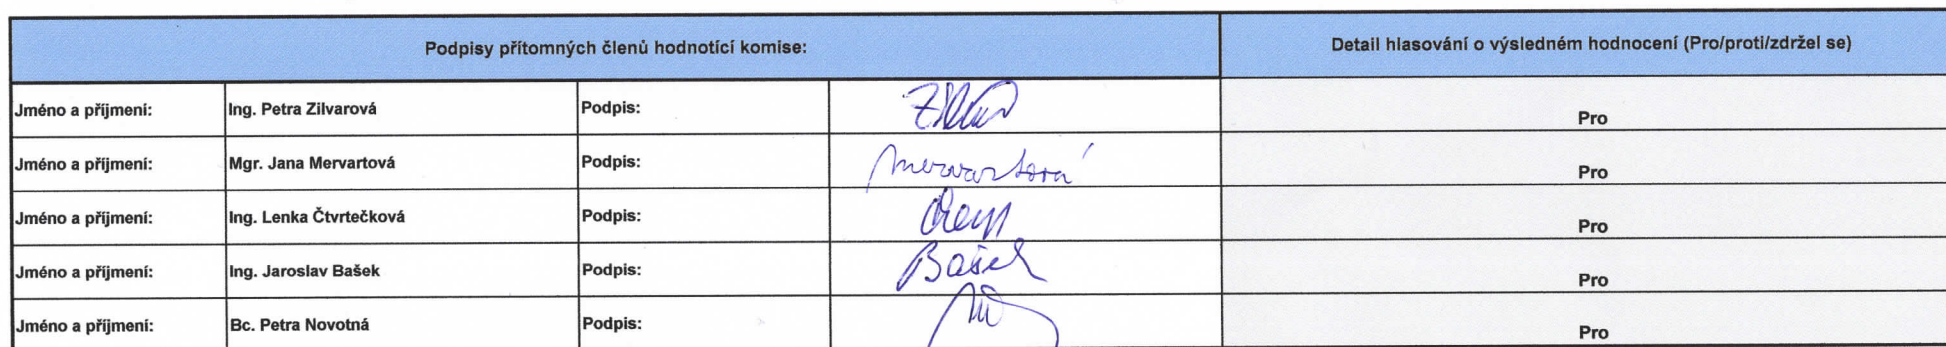 Podpisy přítomných členů hodnotící komise: Detail hlasování o výsledném hodnocení (Pro/proti/zdržel se)
Jméno a příjmení: Ing. Petra Zilvarová Podpis: Pro
Jméno a příjmení: Mgr. Jana Mervartová Podpis: Mervartová Pro
Jméno a příjmení: Ing. Lenka Čtvrtečková Podpis: Pro
Jméno a příjmení: Ing. Jaroslav Bašek Podpis: Bašek Pro
Jméno a příjmení: Bc. Petra Novotná Podpis: Pro